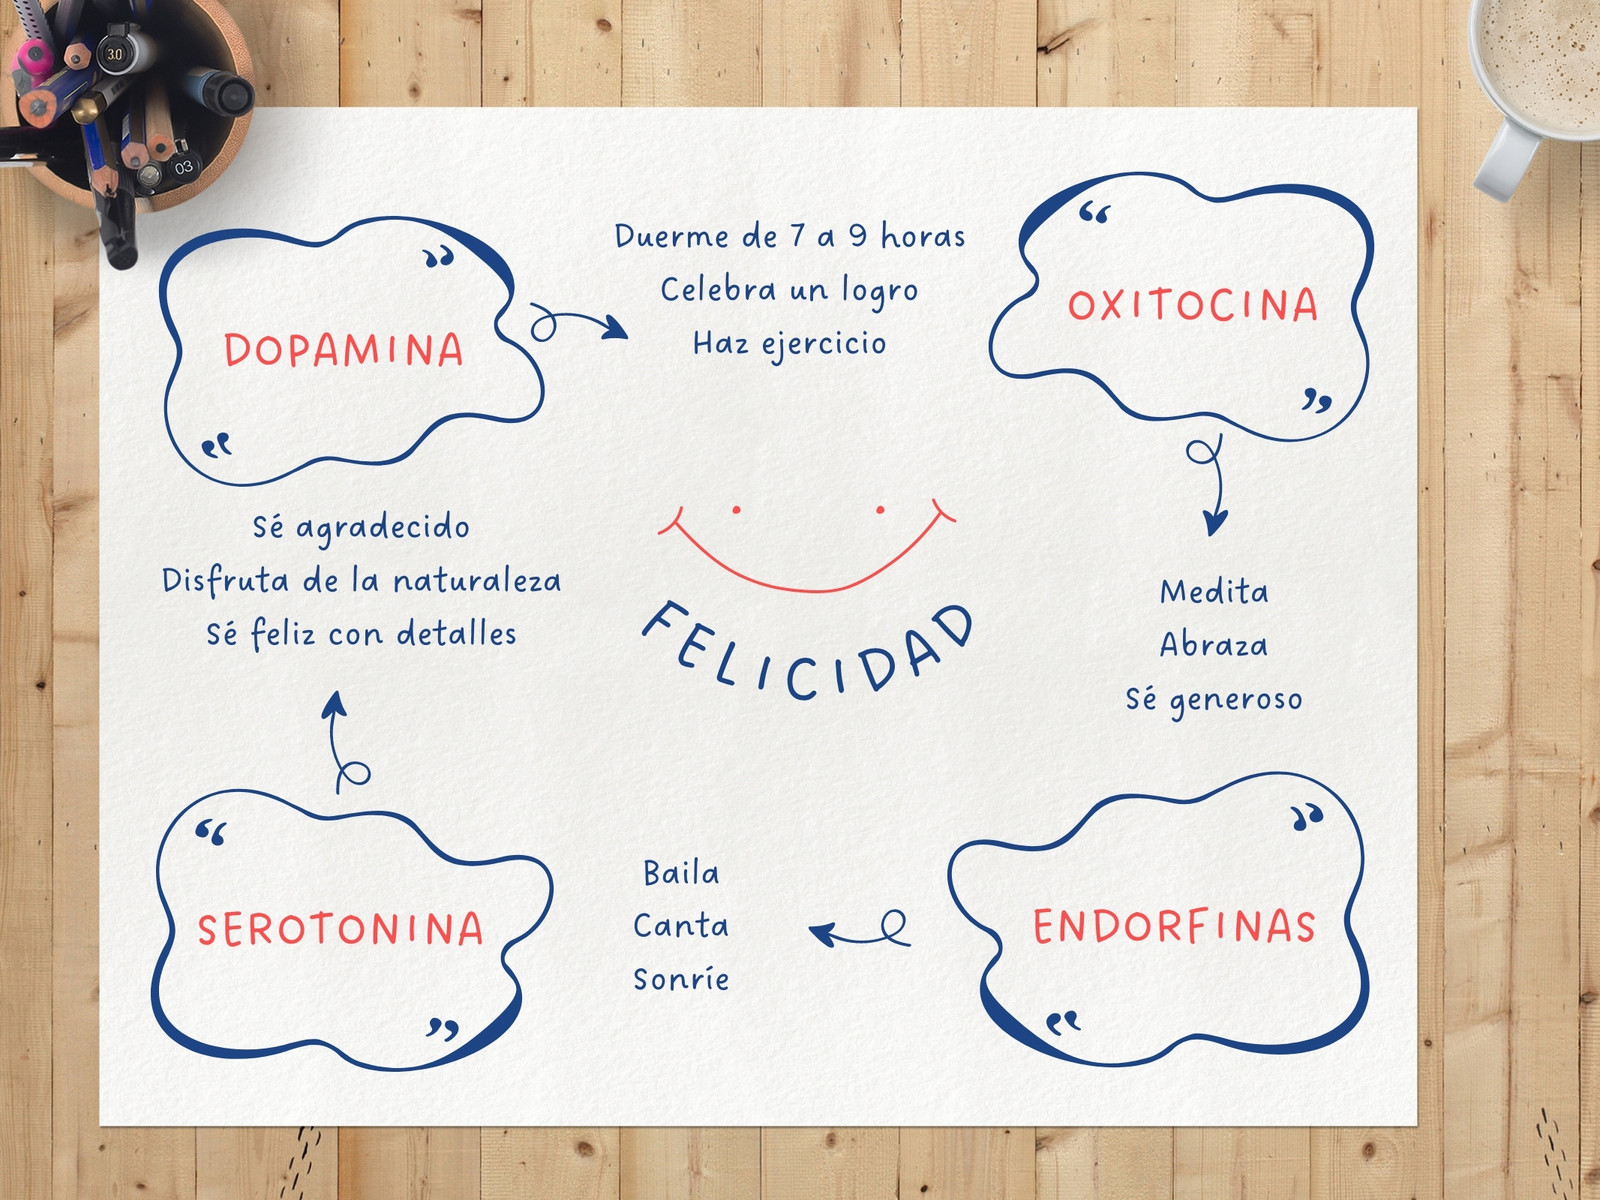 3.0
03
DOPAMINA
Duerme de 7 a 9 horas
Celebra un logro
Haz ejercicio
OXITOCINA
Medita
Abraza
Sé generoso
FELICIDAD
Sé agradecido
Disfruta de la naturaleza
Sé feliz con detalles
SEROTONINA
Baila
Canta
Sonríe
ENDORFINAS